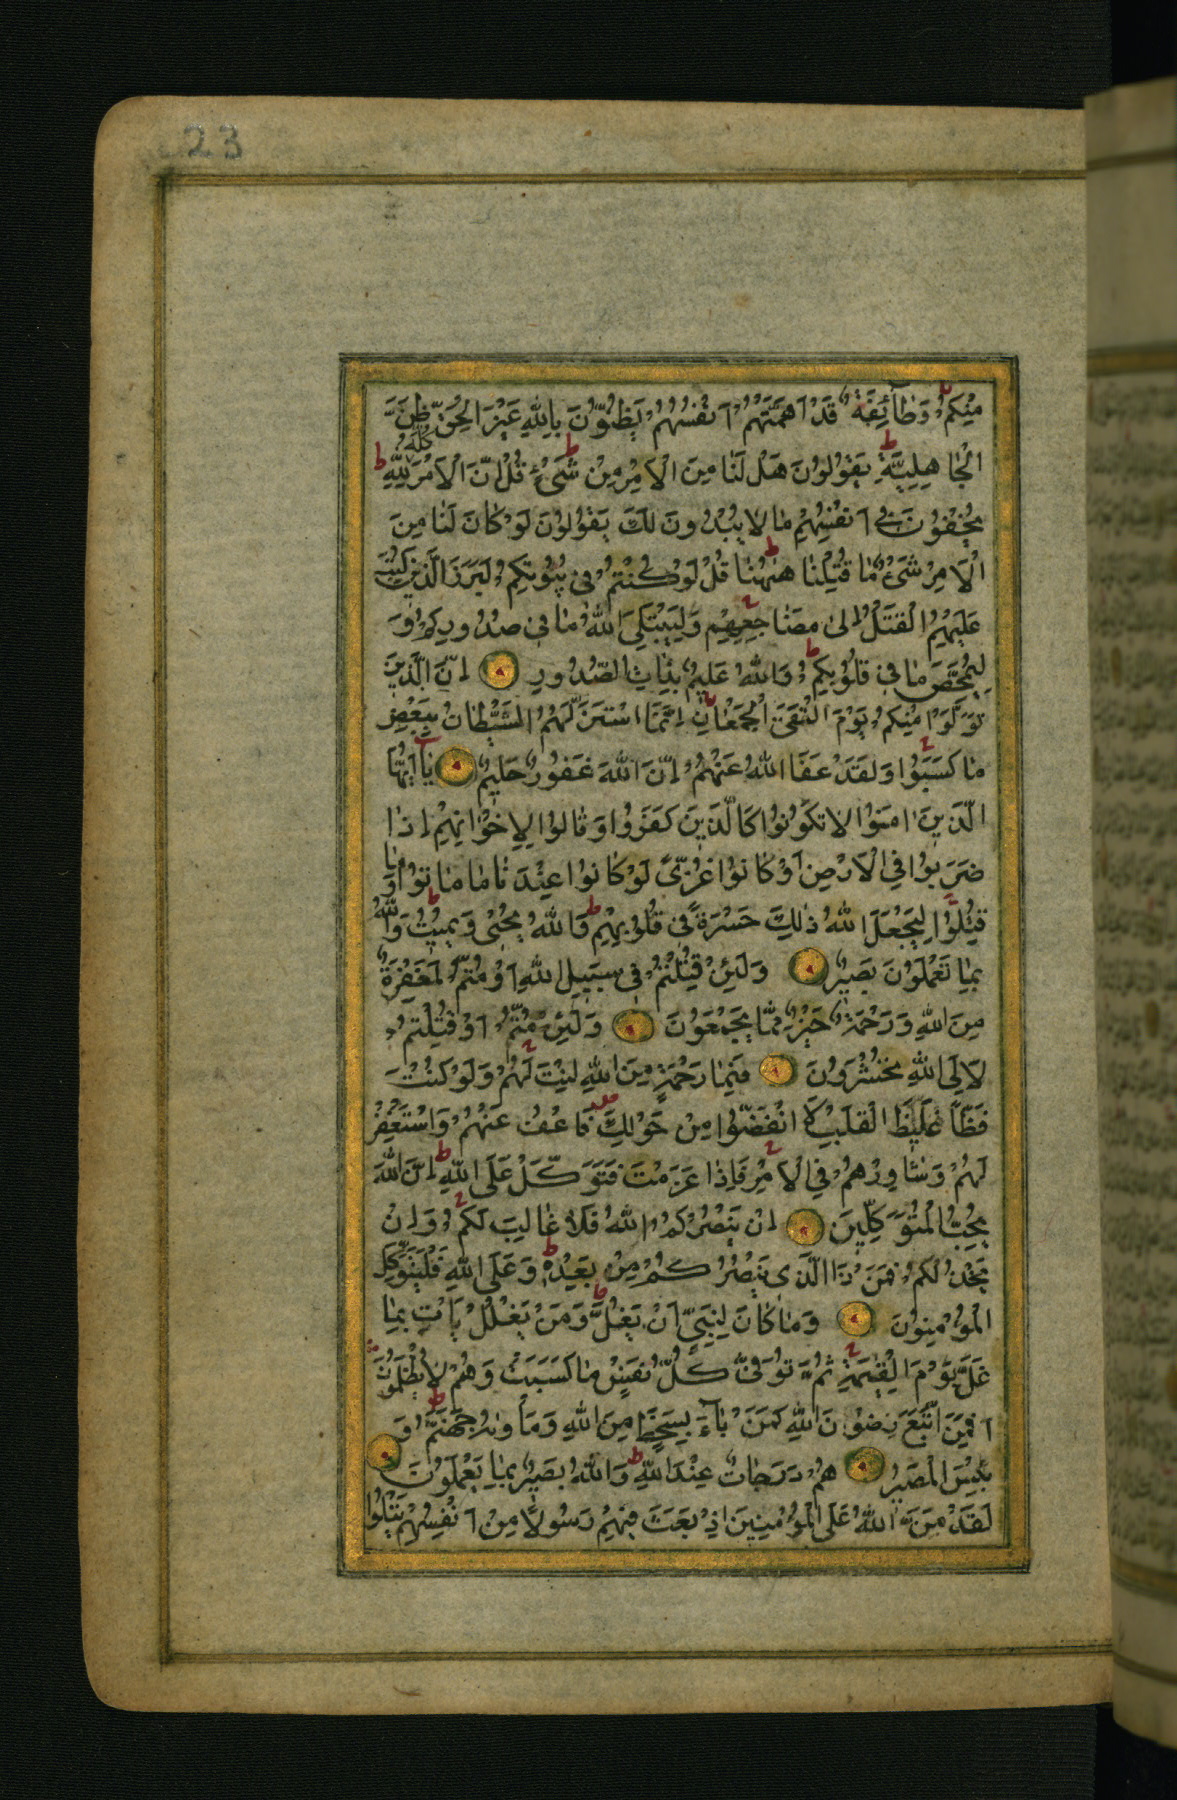 23
مِنْكُمْ وَطَآئِفَةٌ قَدْ اَهَمَّتْهُمْ اَنْفُسُهُمْ يَظُنُّونَ بِاللّٰهِ غَيْرَ الْحَقِّ ظَنَّ
الْجَاهِلِيَّةِ يَقُولُونَ هَلْ لَنَا مِنَ الْاَمْرِ مِنْ شَيْءٍ قُلْ اِنَّ الْاَمْرَ كُلَّهُ لِلّٰهِ
يُخْفُونَ فِي اَنْفُسِهِمْ مَا لَا يُبْدُونَ لَكَ يَقُولُونَ لَوْ كَانَ لَنَا مِنَ
الْاَمْرِ شَيْءٌ مَا قُتِلْنَا هٰهُنَا قُلْ لَوْ كُنْتُمْ فِي بُيُوتِكُمْ لَبَرَزَ الَّذِينَ كُتِبَ
عَلَيْهِمُ الْقَتْلُ اِلٰى مَضَاجِعِهِمْ وَلِيَبْتَلِيَ اللّٰهُ مَا فِي صُدُورِكُمْ وَ
لِيُمَحِّصَ مَا فِي قُلُوبِكُمْ وَاللّٰهُ عَلِيمٌ بِذَاتِ الصُّدُورِ اِنَّ الَّذِينَ
تَوَلَّوْا مِنْكُمْ يَوْمَ الْتَقَى الْجَمْعَانِ اِنَّمَا اسْتَزَلَّهُمُ الشَّيْطَانُ بِبَعْضِ
مَا كَسَبُوا وَلَقَدْ عَفَا اللّٰهُ عَنْهُمْ اِنَّ اللّٰهَ غَفُورٌ حَلِيمٌ يَآ اَيُّهَا
الَّذِينَ اٰمَنُوا لَا تَكُونُوا كَالَّذِينَ كَفَرُوا وَقَالُوا لِاِخْوَانِهِمْ اِذَا
ضَرَبُوا فِي الْاَرْضِ اَوْ كَانُوا غُزًّى لَوْ كَانُوا عِنْدَنَا مَا مَاتُوا وَمَا
قُتِلُوا لِيَجْعَلَ اللّٰهُ ذٰلِكَ حَسْرَةً فِي قُلُوبِهِمْ وَاللّٰهُ يُحْيِي وَيُمِيتُ وَاللّٰهُ
بِمَا تَعْمَلُونَ بَصِيرٌ وَلَئِنْ قُتِلْتُمْ فِي سَبِيلِ اللّٰهِ اَوْ مُتُّمْ لَمَغْفِرَةٌ
مِنَ اللّٰهِ وَرَحْمَةٌ خَيْرٌ مِمَّا يَجْمَعُونَ وَلَئِنْ مُتُّمْ اَوْ قُتِلْتُمْ
لَاِلَى اللّٰهِ تُحْشَرُونَ فَبِمَا رَحْمَةٍ مِنَ اللّٰهِ لِنْتَ لَهُمْ وَلَوْ كُنْتَ
فَظًّا غَلِيظَ الْقَلْبِ لَا انْفَضُّوا مِنْ حَوْلِكَ فَاعْفُ عَنْهُمْ وَاسْتَغْفِرْ
لَهُمْ وَشَاوِرْهُمْ فِي الْاَمْرِ فَاِذَا عَزَمْتَ فَتَوَكَّلْ عَلَى اللّٰهِ اِنَّ اللّٰهَ
يُحِبُّ الْمُتَوَكِّلِينَ اِنْ يَنْصُرْكُمُ اللّٰهُ فَلَا غَالِبَ لَكُمْ وَاِنْ
يَخْذُلْكُمْ فَمَنْ ذَا الَّذِي يَنْصُرُكُمْ مِنْ بَعْدِهِ وَعَلَى اللّٰهِ فَلْيَتَوَكَّلِ
الْمُؤْمِنُونَ وَمَا كَانَ لِنَبِيٍّ اَنْ يَغُلَّ وَمَنْ يَغْلُلْ يَاْتِ بِمَا
غَلَّ يَوْمَ الْقِيٰمَةِ ثُمَّ تُوَفّٰى كُلُّ نَفْسٍ مَا كَسَبَتْ وَهُمْ لَا يُظْلَمُونَ
اَفَمَنِ اتَّبَعَ رِضْوَانَ اللّٰهِ كَمَنْ بَآءَ بِسَخَطٍ مِنَ اللّٰهِ وَمَاْوٰيهُ جَهَنَّمُ وَ
بِئْسَ الْمَصِيرُ هُمْ دَرَجَاتٌ عِنْدَ اللّٰهِ وَاللّٰهُ بَصِيرٌ بِمَا يَعْمَلُونَ
لَقَدْ مَنَّ اللّٰهُ عَلَى الْمُؤْمِنِينَ اِذْ بَعَثَ فِيهِمْ رَسُولًا مِنْ اَنْفُسِهِمْ يَتْلُوا